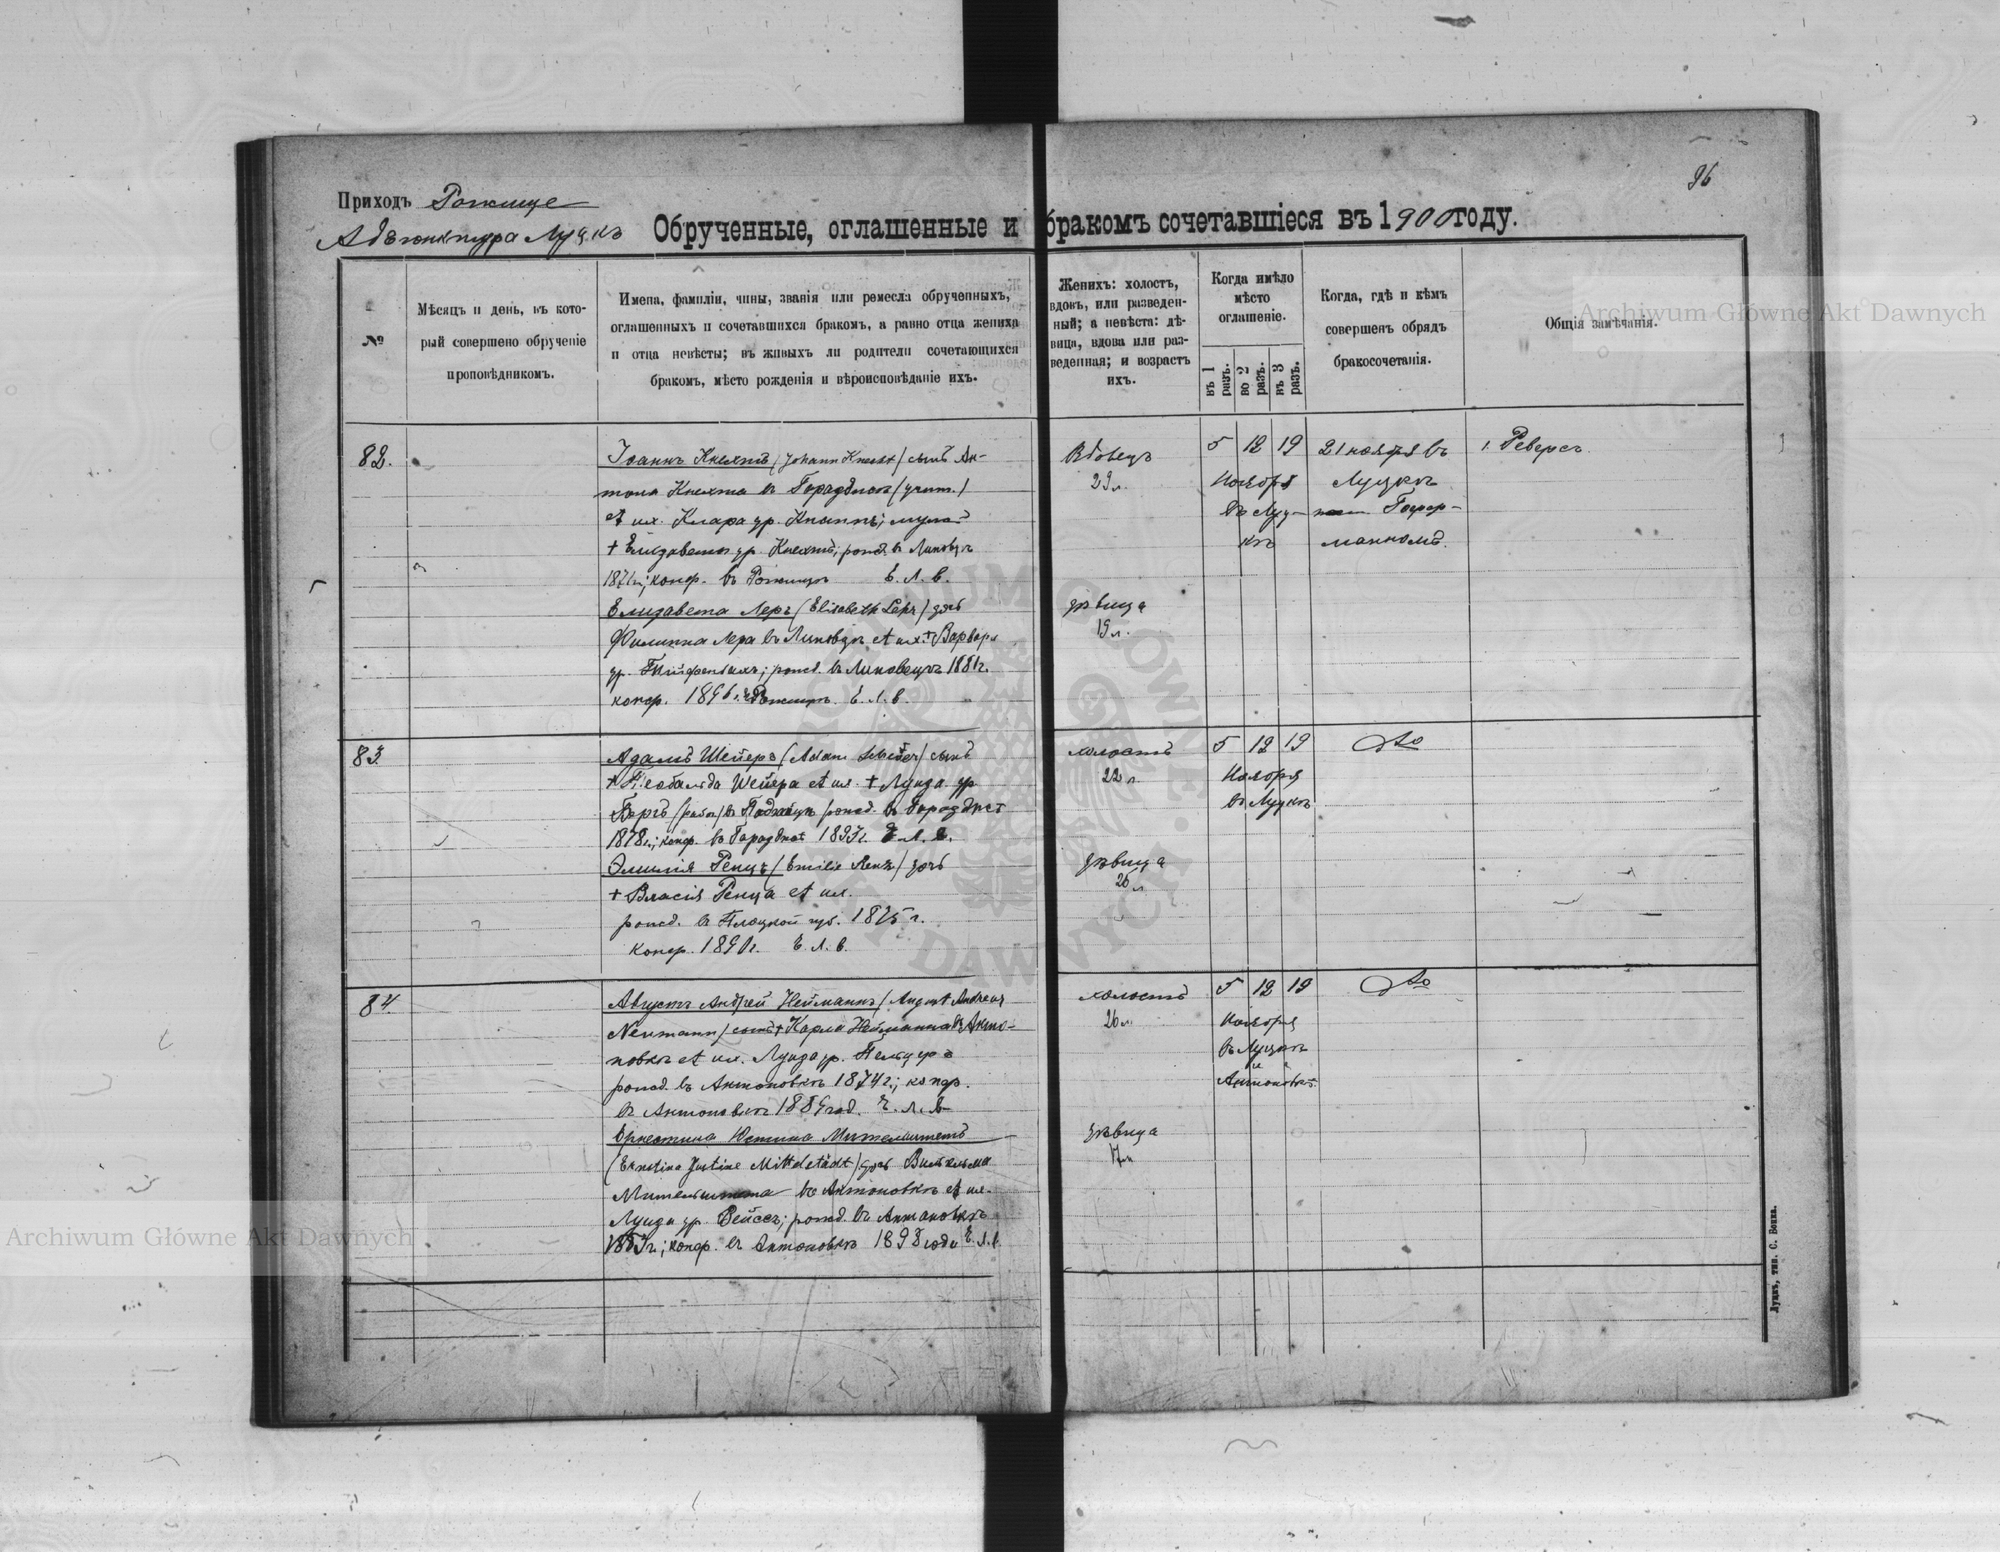 96
Приходъ Рожище
Адъюнктура Луцкъ
Обрученные, оглашенные и бракомъ сочетавшіеся въ 1900 году.
№
Мѣсяцъ и день, въ кото-
рый совершено обрученіе
проповѣдникомъ.
Имена, фамиліи, чины, званія или ремесла обрученныхъ,
оглашенныхъ и сочетавшихся бракомъ, а равно отца жениха
и отца невѣсты; въ живыхъ ли родители сочетающихся
бракомъ, мѣсто рожденія и вѣроисповѣданіе ихъ.
Женихъ: холостъ,
вдовъ, или разведен-
ный; а невѣста: дѣ-
вица, вдова или раз-
веденная; и возрастъ
ихъ.
Когда имѣло
мѣсто
оглашеніе.
въ 1 разъ.
во 2 разъ.
въ 3 разъ.
Когда, гдѣ и кѣмъ
совершенъ обрядъ
бракосочетанія.
Общія замѣчанія.
82.
Іоаннъ Кнехтъ (Johann Knecht) сынъ Ан-
тона Кнехта въ
ж. Клара ур.
+ Елизаветы ур. Кнехтъ; рожд. в Линовцѣ
1871г.; конф. въ Рожищѣ Е. Л. в.
Елизавета Леръ (Elisabeth Lehr) дочь
Филиппа Лера въ Линовцѣ et + Варвара
ур. рожд. въ Линовецѣ 1881г.
конф. 1896 г. Е. Л. в.
Вдовецъ
29 л.
дѣвица
19 л.
5 12 19
Ноября
въ Луц-
кѣ
21 ноября въ
Луцкѣ
Гофф-
манномъ.
1. Реверсъ
83.
Адамъ Шейеръ (Adam) сынъ
+ Теобальда Шейера et + Луиза ур
Бергъ рожд. въ
1878г.; конф. въ Е. Л. в.
Эмилія Ренцъ (Emilie Renz) дочь
+ Власія Ренца et
рожд. в Плоцкой губ. 1875 г.
конф. Е. Л. в.
холостъ
22 л.
дѣвица
25 л
5 12 19
Ноября
въ Луцкѣ
dto
84.
Августъ Андрей Нейманнъ (August Andreas
Neumann) сынъ + Карла Нейманна въ Анто-
новкѣ et Луиза ур.
рожд. въ Антоновкѣ 1874 г.; конф.
въ Антоновкѣ 1889 год. Е. Л. в.
Эрнестина Юстина Мительштетъ
(Ernstine Justine Mittelstädt) дочь Вильгельма
Мительштета въ Антоновкѣ et
Луизы ур. Вейссъ; рожд. въ Антоновкѣ
1883г.; конф. въ Антоновкѣ 1898 года Е. Л. в.
холостъ
26 л.
дѣвица
17 л.
5 12 19
Ноября
въ Луцкѣ
и
Антоновкѣ.
dto
Луцкъ, тип. С. Бонка.
Archiwum Główne Akt Dawnych
Archiwum Główne Akt Dawnych